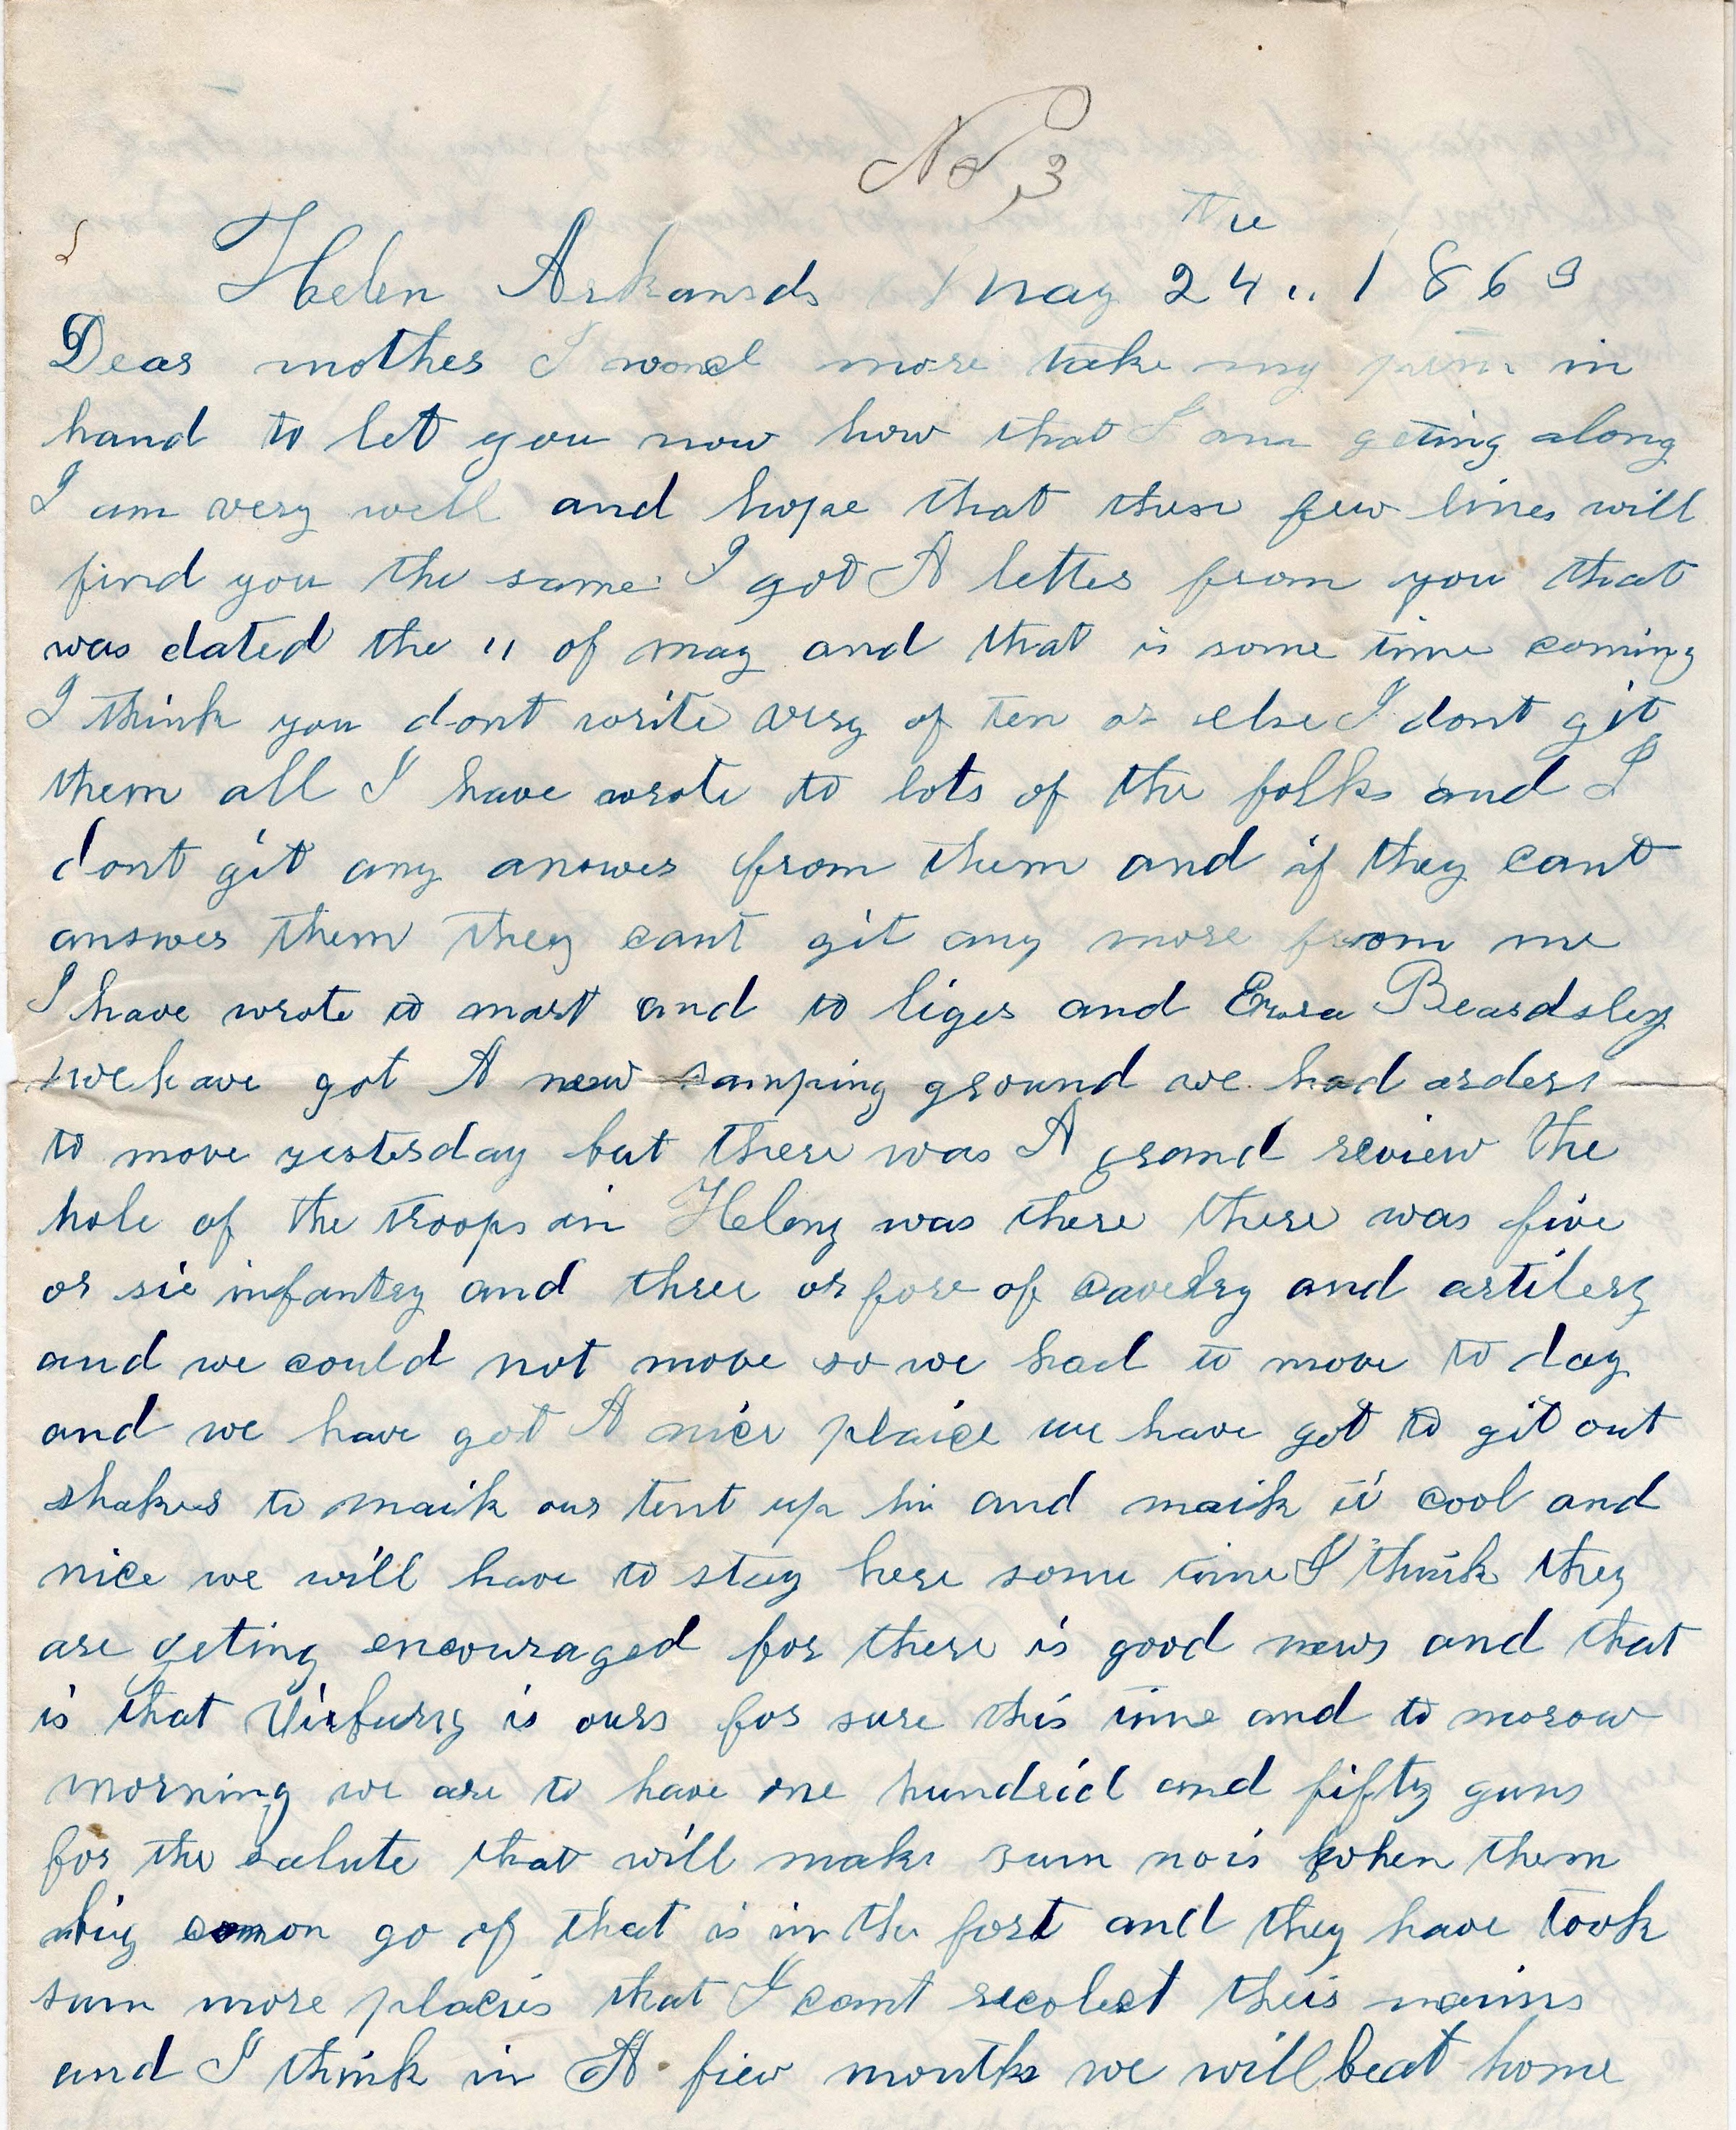 No 3
the
Helen Arkansds May 24 .. 1863
Dear mother I wonce more take my penn in
hand to let you now how that I am geting along
I am very well and hope that these few lines will
find you the same I got A letter from you that
was dated the 11 of may and that is some time coming
I think you dont write very of ten or else I dont git
them all I have wrote to lots of the folks and I
dont git any answer from them and if they cant
answer them they cant git any more from me
I have wrote to mart and to liger and Beardsley
we have got A new camping ground we had orders
to move yesterday but there was A grand review the
hole of the troops in Heleny was there there was five
or sie infantry and three or fore of cavelry and artilery
and we could not move so we had to move to day
and we have got A nice plaice we have got to git out
shakes to maik our tent up hi and maik it cool and
nice we will have to stay here some time I think they
are geting encouraged for there is good news and that
is that Vixburg is ours for sure this time and to morow
morning we are to have one hundrid and fifty guns
for the salute that will make sum nois when them
big canon go of that is in the fort and they have took
sum more placies that I cant recolect their naims
and I think in A fiew months we will beat home